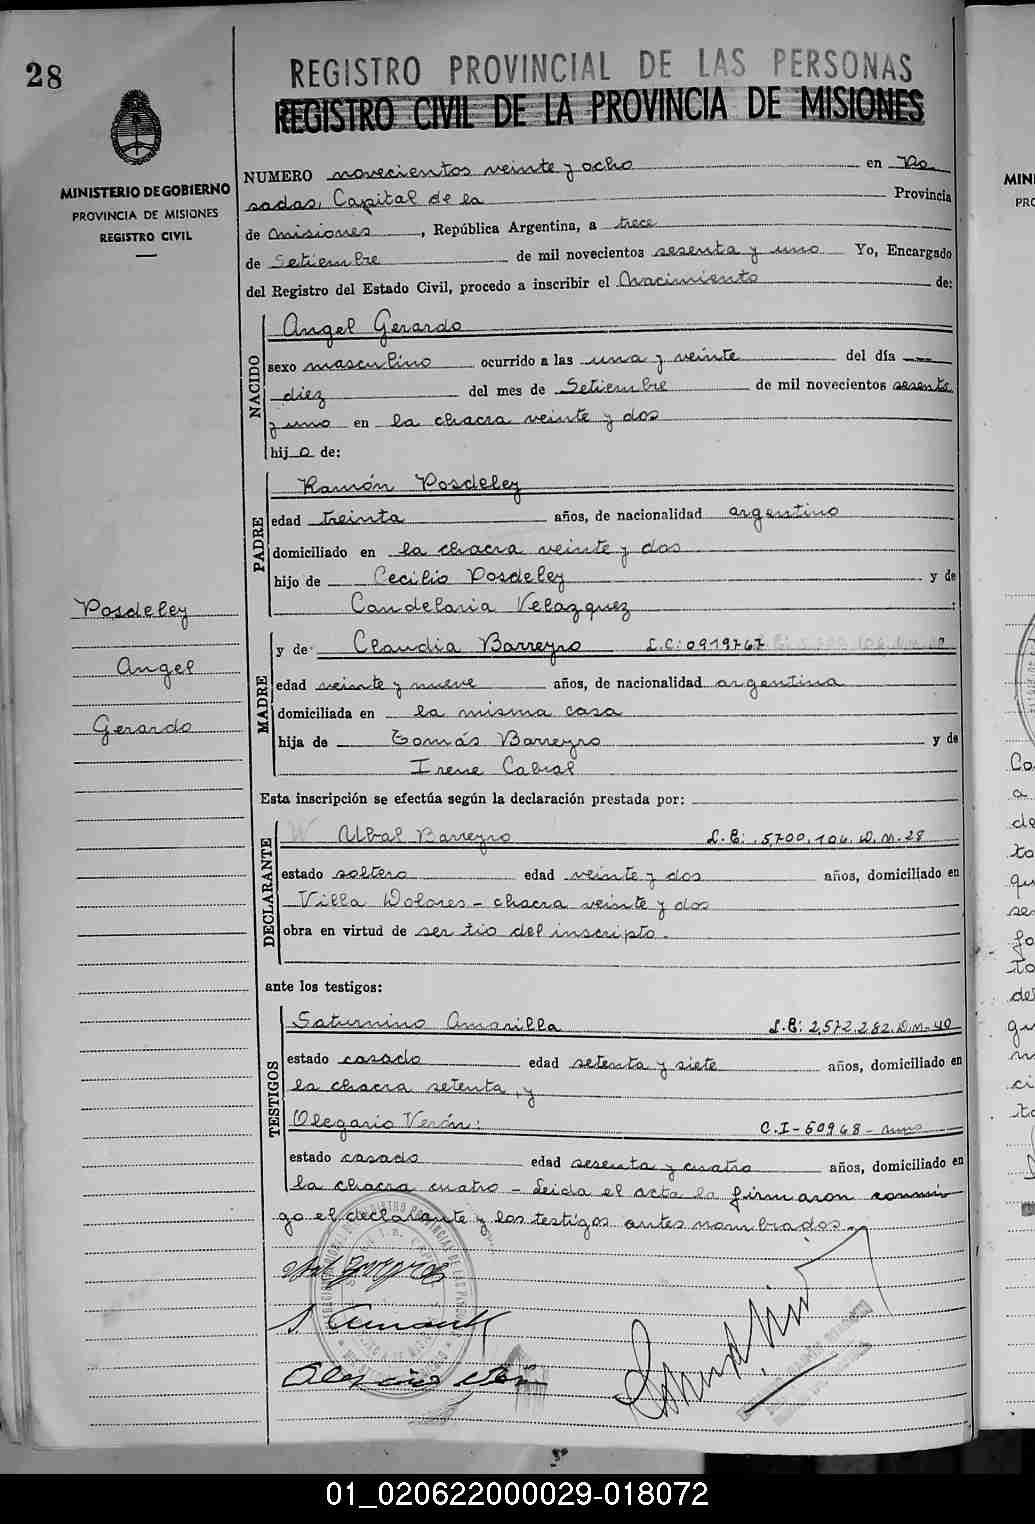 28
REGISTRO PROVINCIAL DE LAS PERSONAS
REGISTRO CIVIL DE LA PROVINCIA DE MISIONES
MINISTERIO DE GOBIERNO
PROVINCIA DE MISIONES
REGISTRO CIVIL
NUMERO novecientos veinte y ocho en Po
sadas, Capital de la Provincia
de Misiones, República Argentina, a trece
de Setiembre de mil novecientos sesenta y uno Yo, Encargado
del Registro del Estado Civil, procedo a inscribir el Nacimiento de:
NACIDO
Angel Gerardo
sexo masculino ocurrido a las una y veinte del día
diez del mes de Setiembre de mil novecientos sesenta
y uno en la chacra veinte y dos
hijo de:
PADRE
Ramón Posdeley
edad treinta años, de nacionalidad argentino
domiciliado en la chacra veinte y dos
hijo de Cecilio Posdeley y de
Candelaria Velazquez :
Posdeley
Angel
Gerardo
MADRE
y de Claudia Barreyro L.C: 0919767
edad veinte y nueve años, de nacionalidad argentina
domiciliada en la misma casa
hija de Tomás Barreyro y de
Irene Cabral
Esta inscripción se efectúa según la declaración prestada por:
DECLARANTE
Ubal Barreyro L.E: 5,700,104. D.M. 28
estado soltero edad veinte y dos años, domiciliado en
Villa Dolores - chacra veinte y dos
obra en virtud de ser tio del inscripto.
ante los testigos:
TESTIGOS
Saturnino Amarilla L.E: 2,572,282. D.M. 40
estado casado edad setenta y siete años, domiciliado en
la chacra setenta, y
Olegario Verón: C.I-60968-
estado casado edad sesenta y cuatro años, domiciliado en
la chacra cuatro - Leida el acta la firmaron conmi
go el declarante y los testigos antes nombrados.
01_020622000029-018072